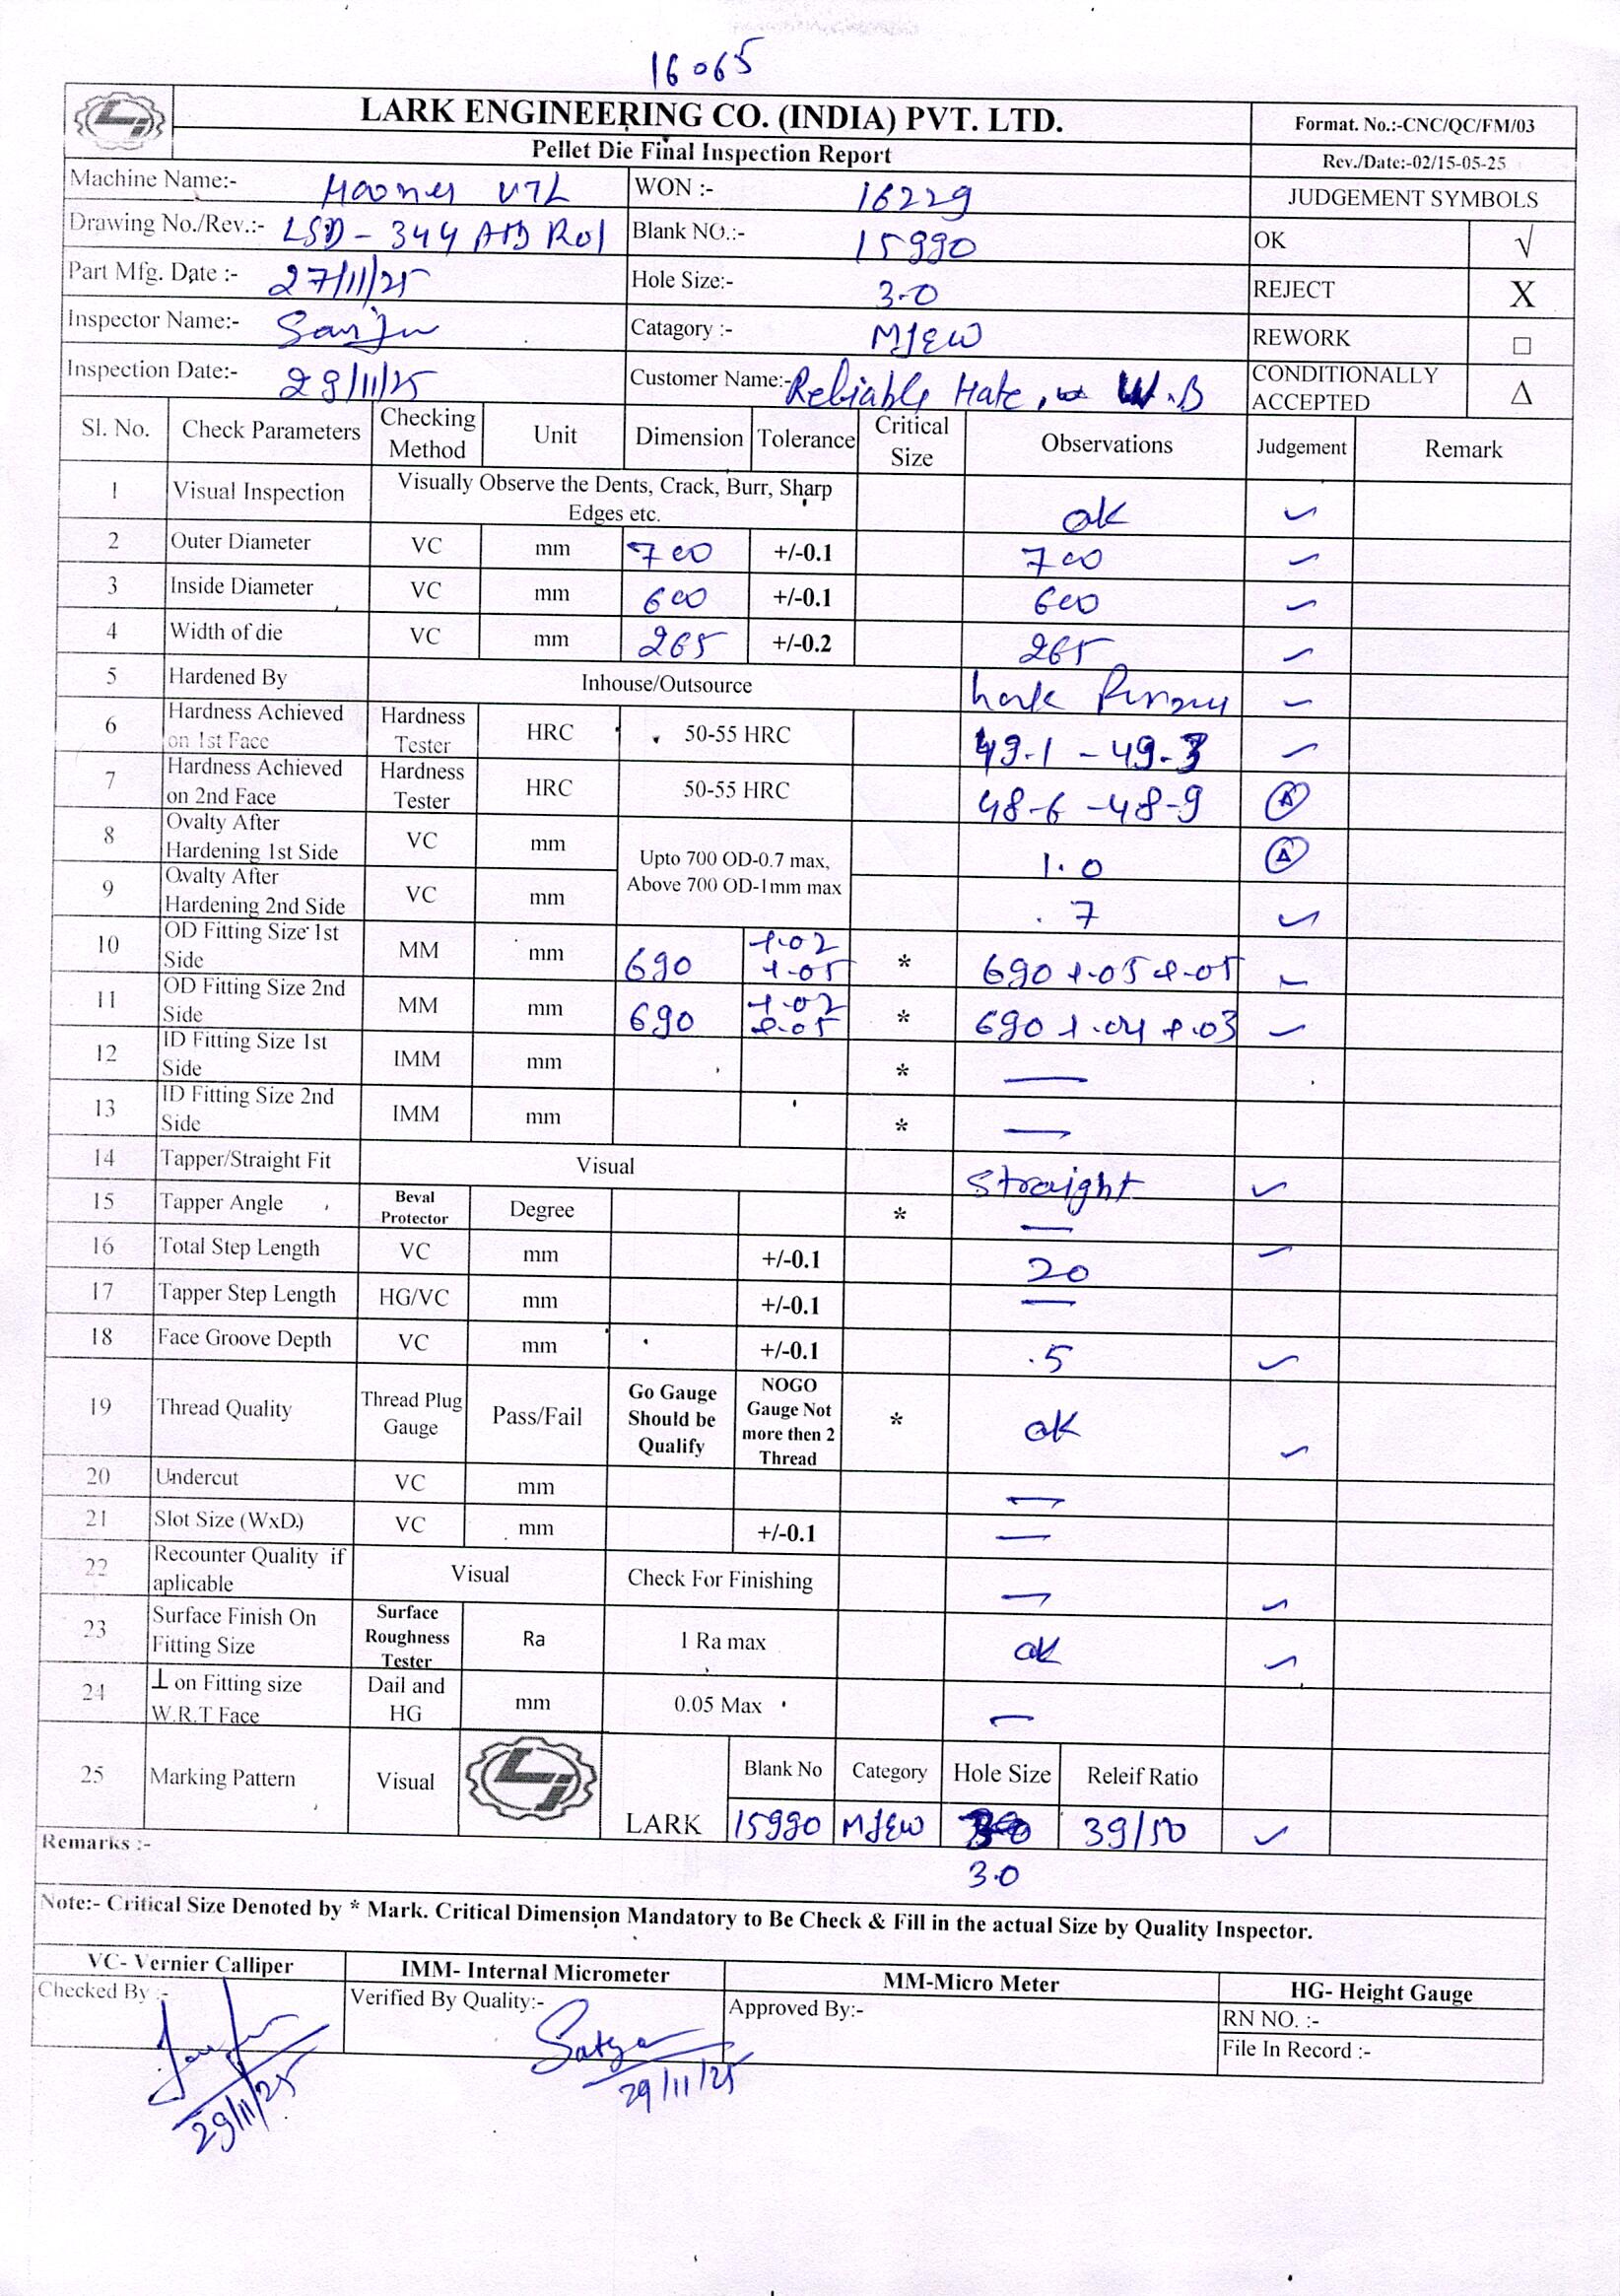 16065
LARK ENGINEERING CO. (INDIA) PVT. LTD.
Format. No.:-CNC/QC/FM/03
Pellet Die Final Inspection Report
Rev./Date:-02/15-05-25
Machine Name:- VTL WON :- 16229 JUDGEMENT SYMBOLS
Drawing No./Rev.:- LSD-344 AB R01 Blank NO.:- 15990 OK √
Part Mfg. Date :- 27/11/25 Hole Size:- 3.0 REJECT X
Inspector Name:- Sanju Catagory :- REWORK □
Inspection Date:- 29/11/25 Customer Name:- Reliable Hate, W.B CONDITIONALLY ACCEPTED Δ
Sl. No. Check Parameters Checking Method Unit Dimension Tolerance Critical Size Observations Judgement Remark
1 Visual Inspection Visually Observe the Dents, Crack, Burr, Sharp Edges etc. ok ✓
2 Outer Diameter VC mm 700 +/-0.1 700 ✓
3 Inside Diameter VC mm 600 +/-0.1 600 ✓
4 Width of die VC mm 265 +/-0.2 265 ✓
5 Hardened By Inhouse/Outsource ✓
6 Hardness Achieved on 1st Face Hardness Tester HRC 50-55 HRC 49.1 - 49.3 ✓
7 Hardness Achieved on 2nd Face Hardness Tester HRC 50-55 HRC 48.6 - 48.9
8 Ovalty After Hardening 1st Side VC mm Upto 700 OD-0.7 max, Above 700 OD-1mm max 1.0
9 Ovalty After Hardening 2nd Side VC mm .7 ✓
10 OD Fitting Size 1st Side MM mm 690 +.02 +.05 * 690 +.05 +.05 ✓
11 OD Fitting Size 2nd Side MM mm 690 +.02 +.05 * 690 +.04 +.03 ✓
12 ID Fitting Size 1st Side IMM mm * —
13 ID Fitting Size 2nd Side IMM mm * —
14 Tapper/Straight Fit Visual Straight ✓
15 Tapper Angle Beval Protector Degree * —
16 Total Step Length VC mm +/-0.1 20 ✓
17 Tapper Step Length HG/VC mm +/-0.1 —
18 Face Groove Depth VC mm +/-0.1 .5 ✓
19 Thread Quality Thread Plug Gauge Pass/Fail Go Gauge Should be Qualify NOGO Gauge Not more then 2 Thread * ok ✓
20 Undercut VC mm —
21 Slot Size (WxD.) VC mm +/-0.1 —
22 Recounter Quality if aplicable Visual Check For Finishing — ✓
23 Surface Finish On Fitting Size Surface Roughness Tester Ra 1 Ra max ok ✓
24 ⊥ on Fitting size W.R.T Face Dail and HG mm 0.05 Max —
25 Marking Pattern Visual LARK Blank No Category Hole Size Releif Ratio
15990 39/50 ✓
Remarks :- 3.0
Note:- Critical Size Denoted by * Mark. Critical Dimension Mandatory to Be Check & Fill in the actual Size by Quality Inspector.
VC- Vernier Calliper IMM- Internal Micrometer MM-Micro Meter HG- Height Gauge
Checked By :- Verified By Quality:- Satya Approved By:- RN NO. :-
File In Record :-
29/11/25 29/11/25